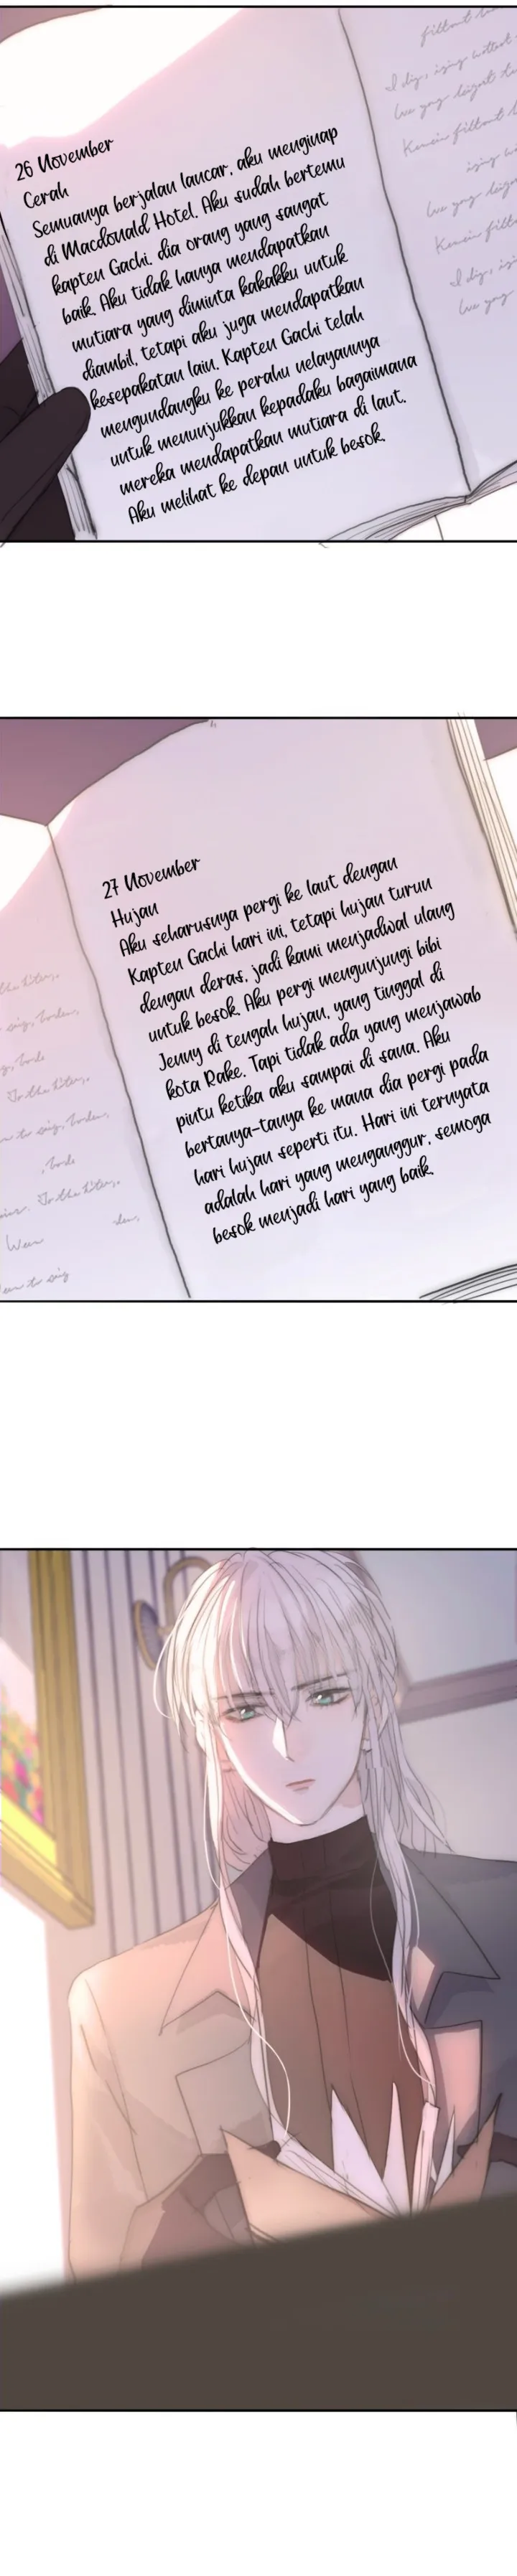 26 November
Cerah
Semuanya berjalan lancar, aku menginap
di Macdonald Hotel. Aku sudah bertemu
kapten Gachi, dia orang yang sangat
baik. Aku tidak hanya mendapatkan
mutiara yang diminta kakakku untuk
diambil, tetapi aku juga mendapatkan
kesepakatan lain. Kapten Gachi telah
mengundangku ke perahu nelayannya
untuk menunjukkan kepadaku bagaimana
mereka mendapatkan mutiara di laut.
Aku melihat ke depan untuk besok.
27 November
Hujan
Aku seharusnya pergi ke laut dengan
Kapten Gachi hari ini, tetapi hujan turun
dengan deras, jadi kami menjadwal ulang
untuk besok. Aku pergi mengunjungi bibi
Jenny di tengah hujan, yang tinggal di
kota Rake. Tapi tidak ada yang menjawab
pintu ketika aku sampai di sana. Aku
bertanya-tanya ke mana dia pergi pada
hari hujan seperti itu. Hari ini ternyata
adalah hari yang menganggur, semoga
besok menjadi hari yang baik.